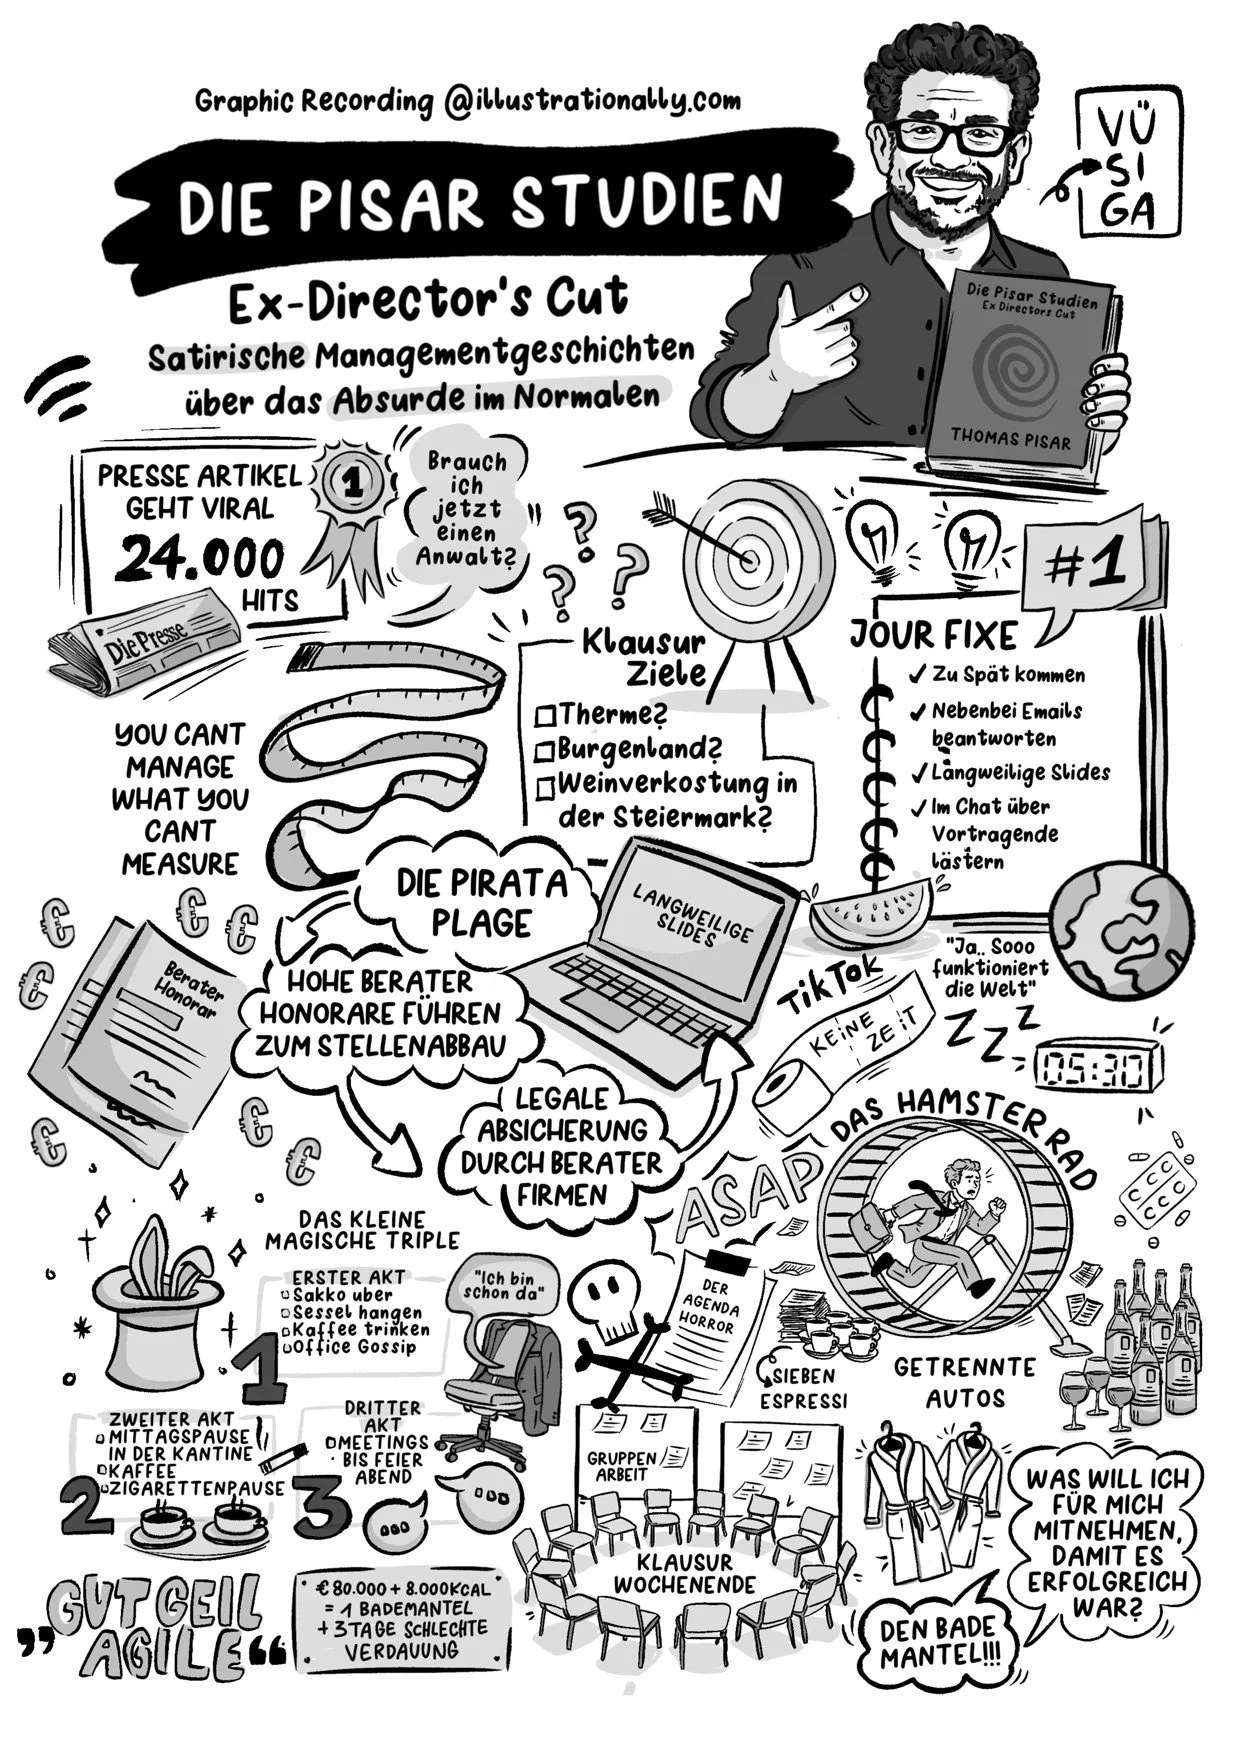 Graphic Recording @illustrationally.com
DIE PISAR STUDIEN
Ex-Director's Cut
Satirische Managementgeschichten
über das Absurde im Normalen
VÜ
SI
GA
Die Pisar Studien
Ex Directors Cut
THOMAS PISAR
PRESSE ARTIKEL
GEHT VIRAL
24.000
HITS
1
Die Presse
Brauch
ich
jetzt
einen
Anwalt?
???
Klausur
Ziele
Therme?
Burgenland?
Weinverkostung in
der Steiermark?
#1
JOUR FIXE
✓ Zu Spät kommen
✓ Nebenbei Emails
beantworten
✓ Langweilige Slides
✓ Im Chat über
Vortragende
lästern
YOU CANT
MANAGE
WHAT YOU
CANT
MEASURE
DIE PIRATA
PLAGE
LANGWEILIGE
SLIDES
"Ja.. Sooo
funktioniert
die Welt"
€ € € € € € €
Berater
Honorar
HOHE BERATER
HONORARE FÜHREN
ZUM STELLENABBAU
LEGALE
ABSICHERUNG
DURCH BERATER
FIRMEN
TikTok
KEINE ZEIT
ZZZ
05:30
DAS HAMSTER RAD
ASAP
DER
AGENDA
HORROR
SIEBEN
ESPRESSI
GETRENNTE
AUTOS
DAS KLEINE
MAGISCHE TRIPLE
1
ERSTER AKT
Sakko uber
Sessel hangen
Kaffee trinken
Office Gossip
"Ich bin
schon da"
2
ZWEITER AKT
MITTAGSPAUSE
IN DER KANTINE
KAFFEE
ZIGARETTENPAUSE
3
DRITTER
AKT
MEETINGS
BIS FEIER
ABEND
GRUPPEN
ARBEIT
KLAUSUR
WOCHENENDE
WAS WILL ICH
FÜR MICH
MITNEHMEN,
DAMIT ES
ERFOLGREICH
WAR?
DEN BADE
MANTEL!!!
„GUT GEIL
AGILE“
€ 80.000 + 8.000KCAL
= 1 BADEMANTEL
+ 3 TAGE SCHLECHTE
VERDAUUNG